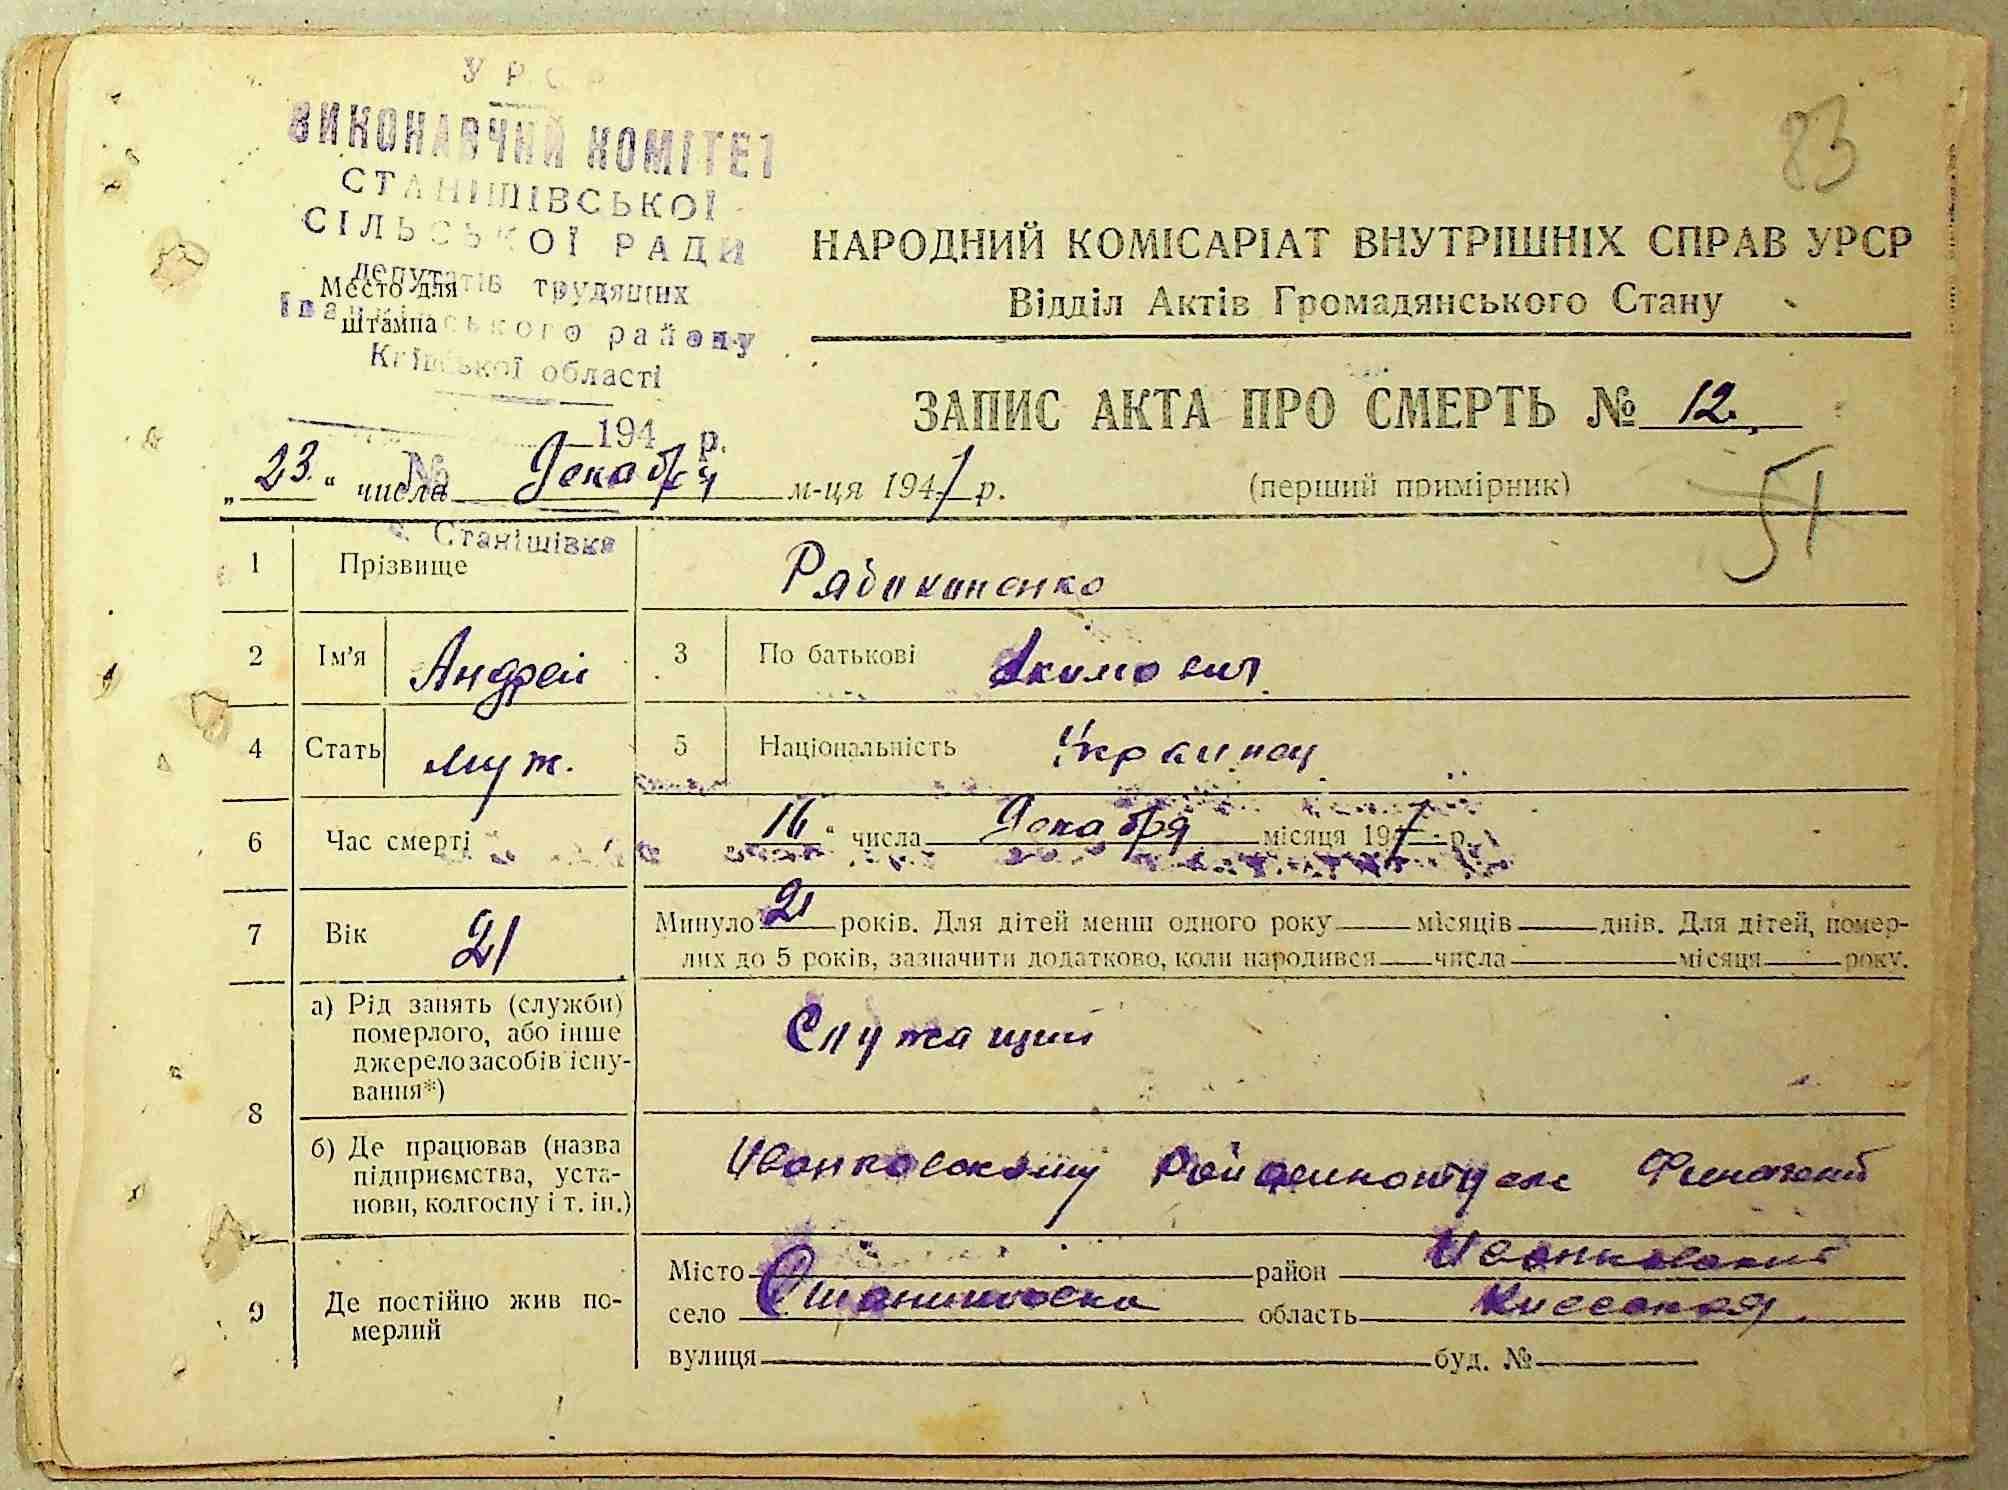 УРСР
ВИКОНАВЧИЙ КОМІТЕТ
СТАНІШІВСЬКОЇ
СІЛЬСЬКОЇ РАДИ
депутатів трудящих
Іванківського району
Київської області
Место для
штампа
194 р.
№
с. Станішівка
83
НАРОДНИЙ КОМІСАРІАТ ВНУТРІШНІХ СПРАВ УРСР
Відділ Актів Громадянського Стану
ЗАПИС АКТА ПРО СМЕРТЬ № 12.
„23." числа Декабря м-ця 1941 р. (перший примірник)
51
1 Прізвище Рябоконенко
2 Ім'я Андрей 3 По батькові Акимович
4 Стать муж. 5 Національність Украинец
6 Час смерті 16 " числа Декабря місяця 194 р.
7 Вік 21 Минуло 21 років. Для дітей менш одного року місяців днів. Для дітей, помер-
лих до 5 років, зазначити додатково, коли народився числа місяця року.
8 а) Рід занять (служби)
померлого, або інше
джерело засобів існу-
вання*)
Служащий
б) Де працював (назва
підприємства, уста-
нови, колгоспу і т. ін.)
Иванковскому
9 Де постійно жив по-
мерлий
Місто район Иванковский
село Станишовка область Киевская
вулиця буд. №